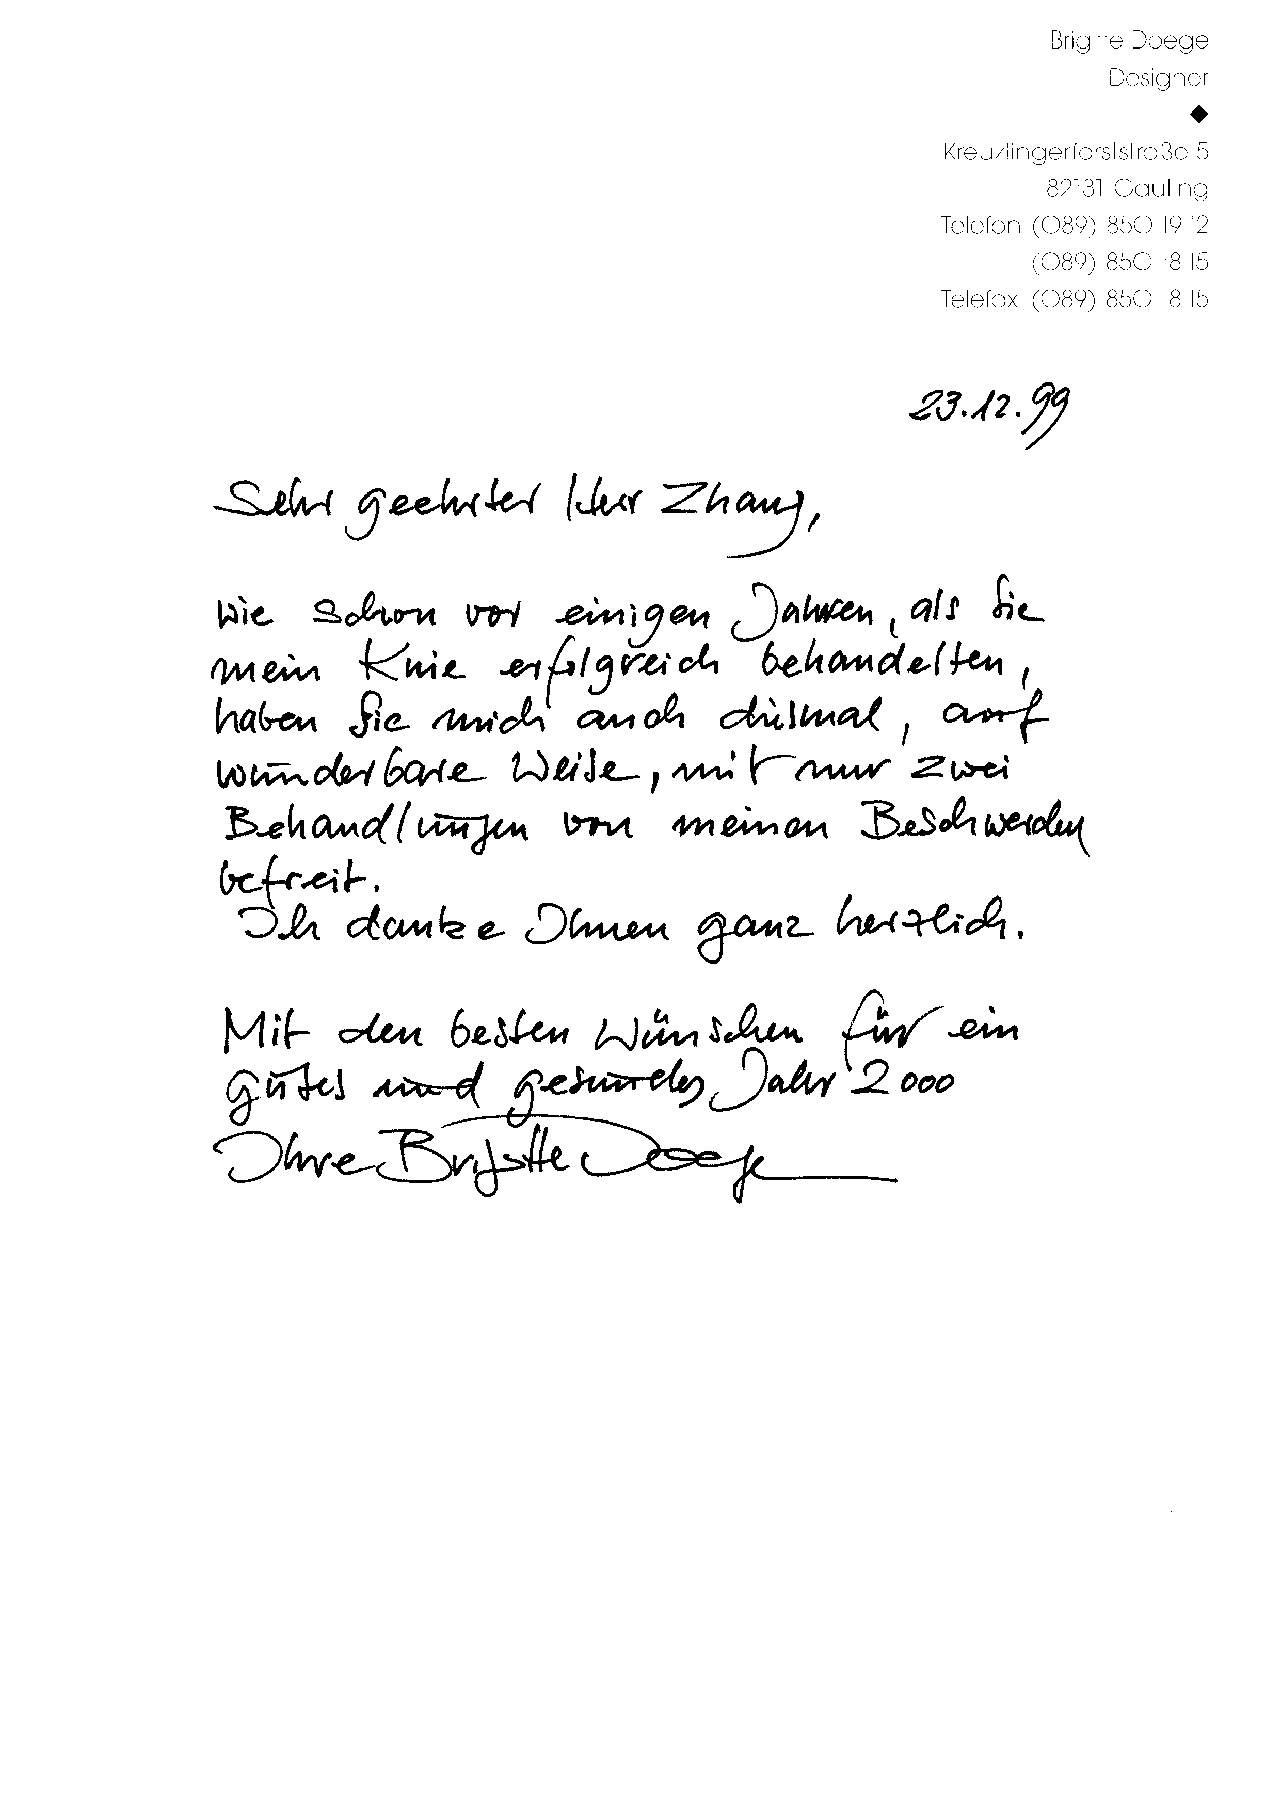 Brigitte Doege
Designer
Kreuzlingerforststraße 5
82131 Gauting
Telefon (089) 850 19 12
(089) 850 18 15
Telefax (089) 850 18 15
23.12.99
Sehr geehrter Herr Zhang,
wie schon vor einigen Jahren, als Sie
mein Knie erfolgreich behandelten,
haben Sie mich auch diesmal, auf
wunderbare Weise, mit nur zwei
Behandlungen von meinen Beschwerden
befreit.
Ich danke Ihnen ganz herzlich.
Mit den besten Wünschen für ein
gutes und gesundes Jahr 2000
Ihre Brigitte Doege